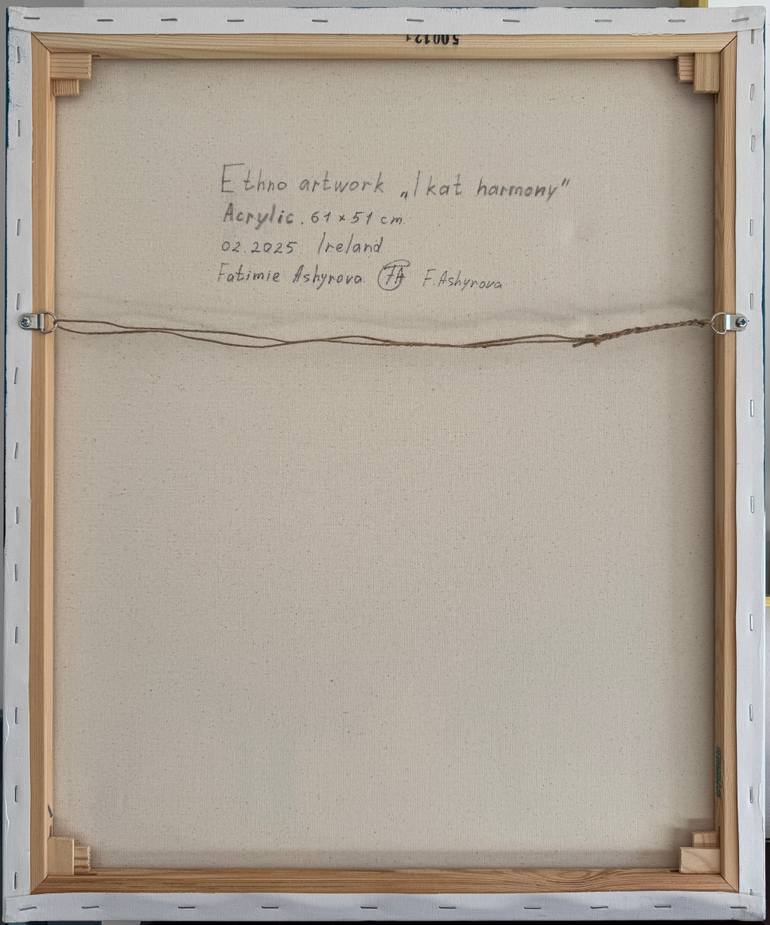 500121
Ethno artwork „Ikat harmony"
Acrylic. 61 × 51 cm.
02.2025 Ireland
Fatimie Ashyrova FA F.Ashyrova